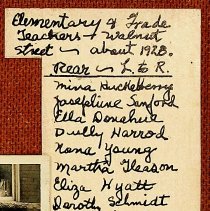 Elementary & Grade
Teachers + Walnut
Street ~ about 1928.
Rear ~ L. to R.
Mina Huckleberry
Josephine Sanford
Ella Donahue
Duelly Harrod
Rona Young
Martha Gleason
Eliza Hyatt
Dorothy Schmidt